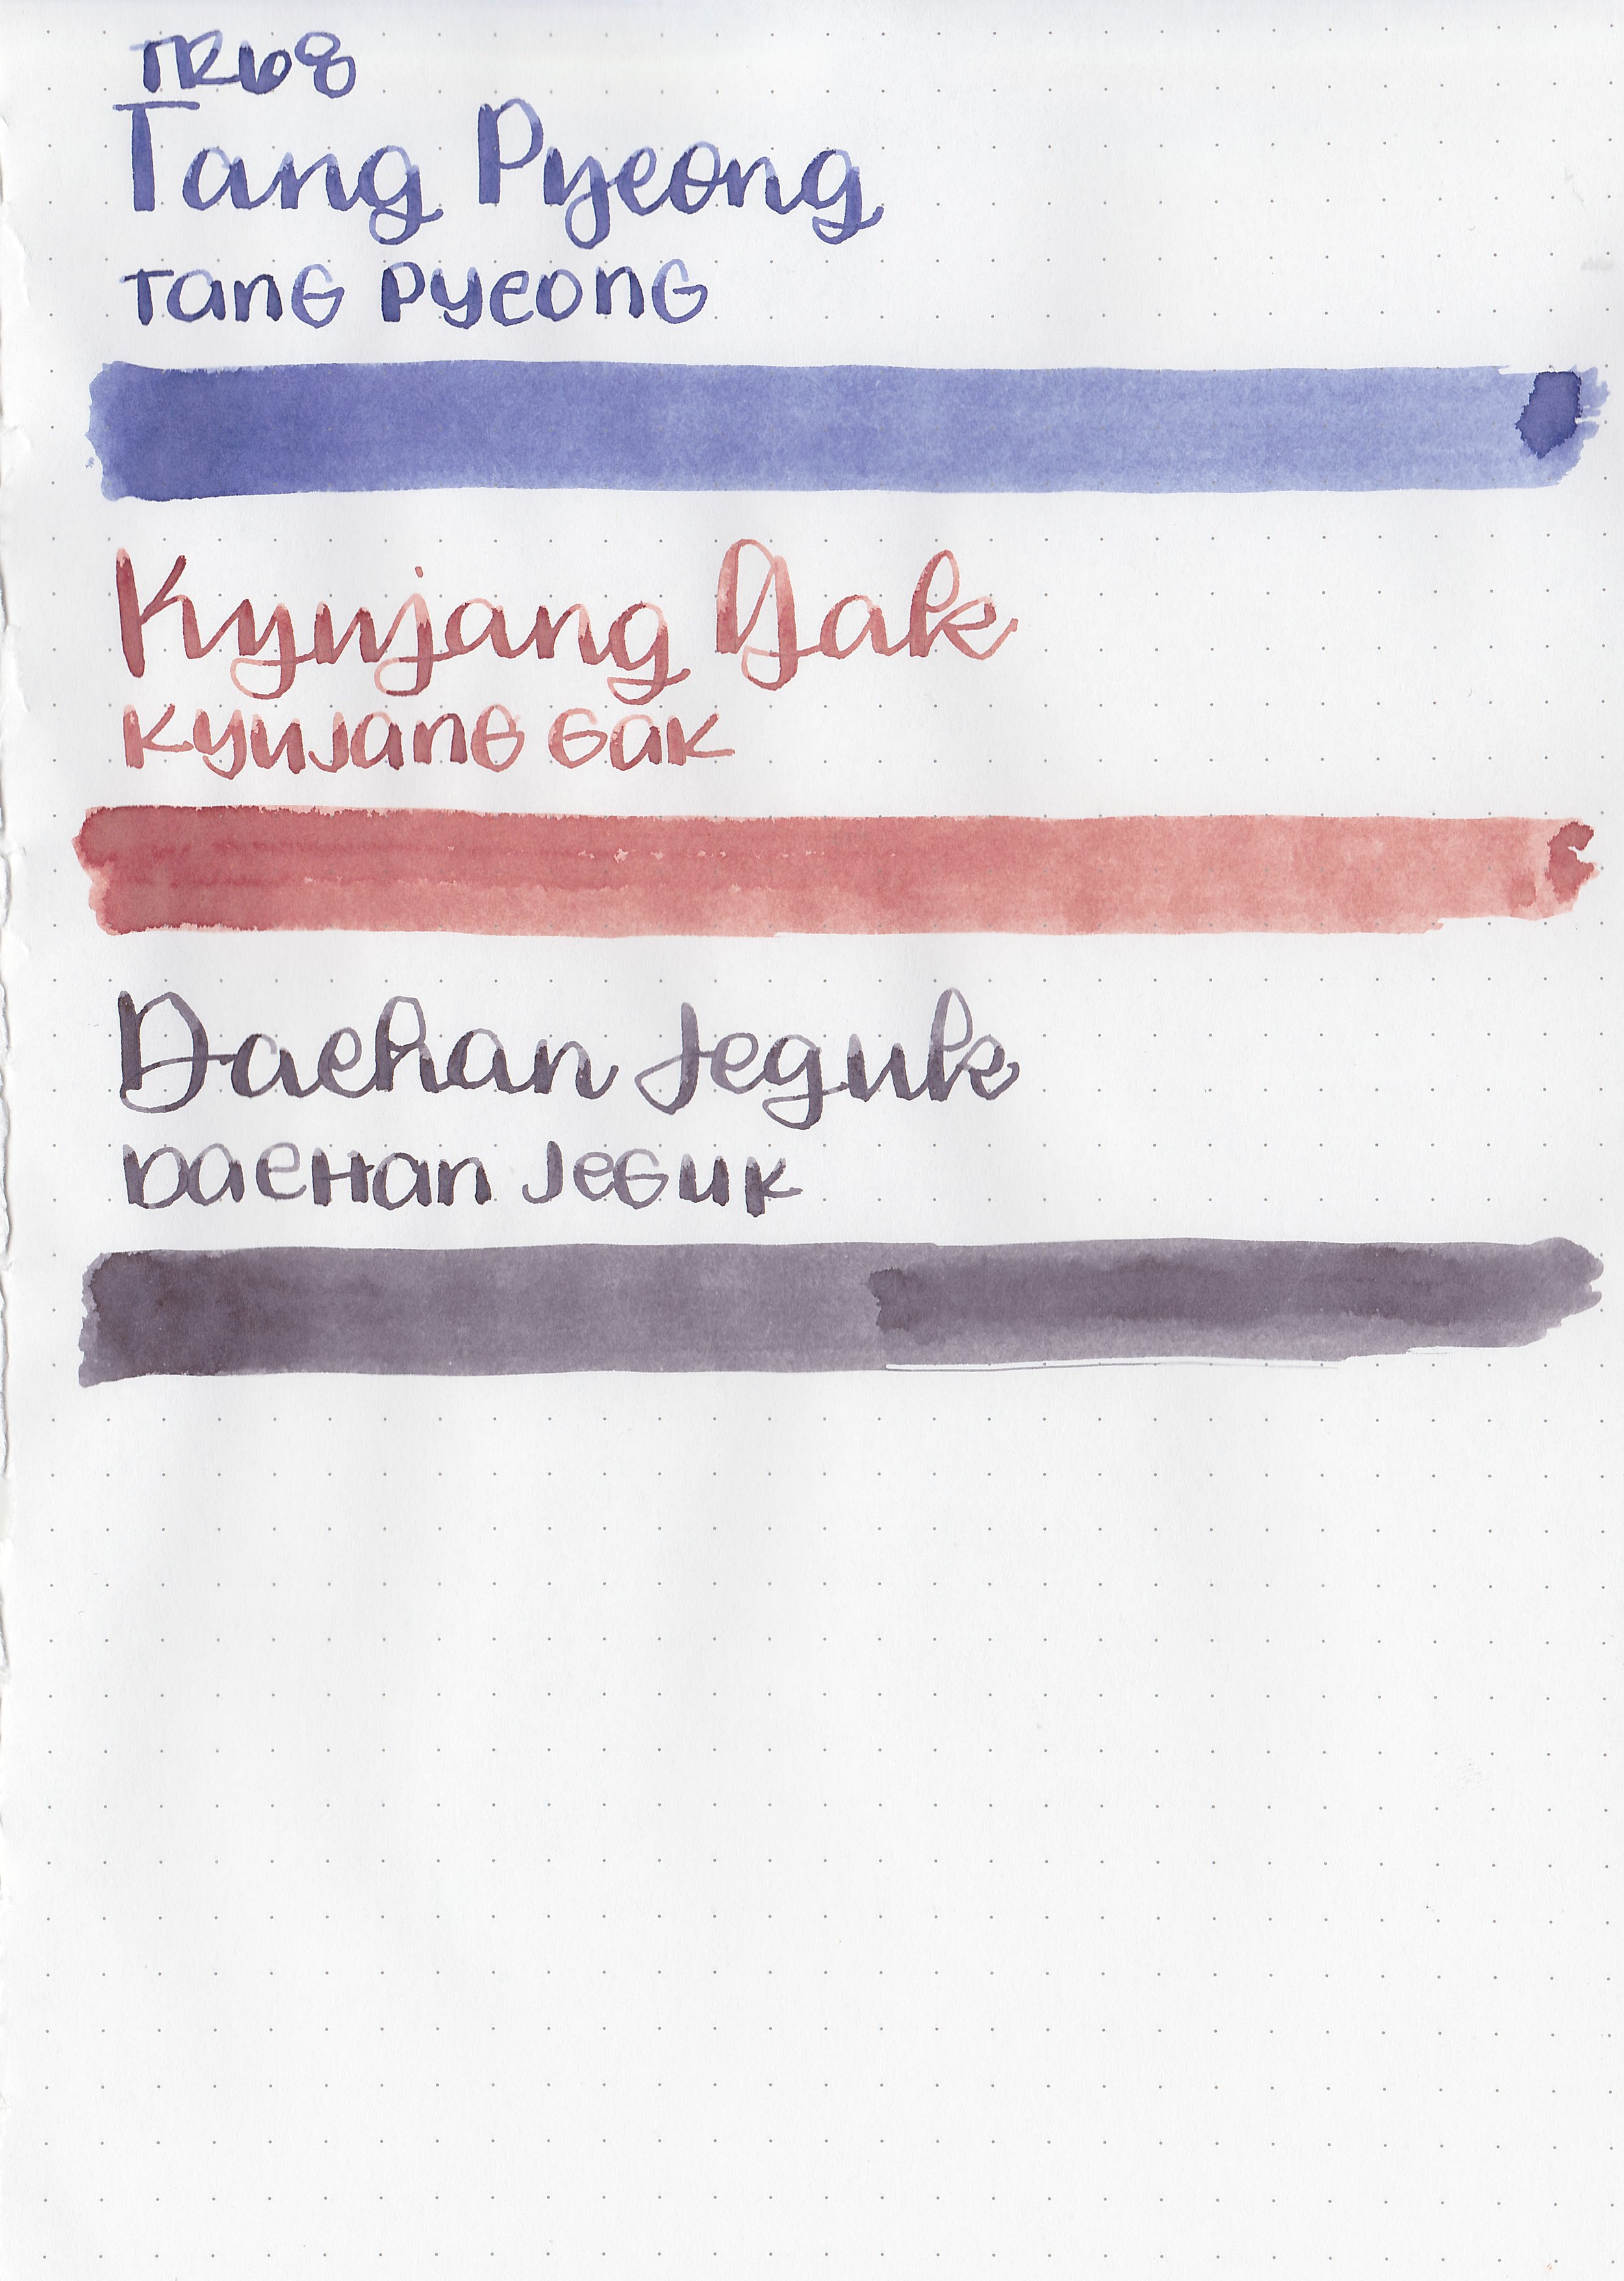 TR68
Tang Pyeong
Tang Pyeong
Kyujang Gak
Kyujang Gak
Daehan Jeguk
Daehan Jeguk